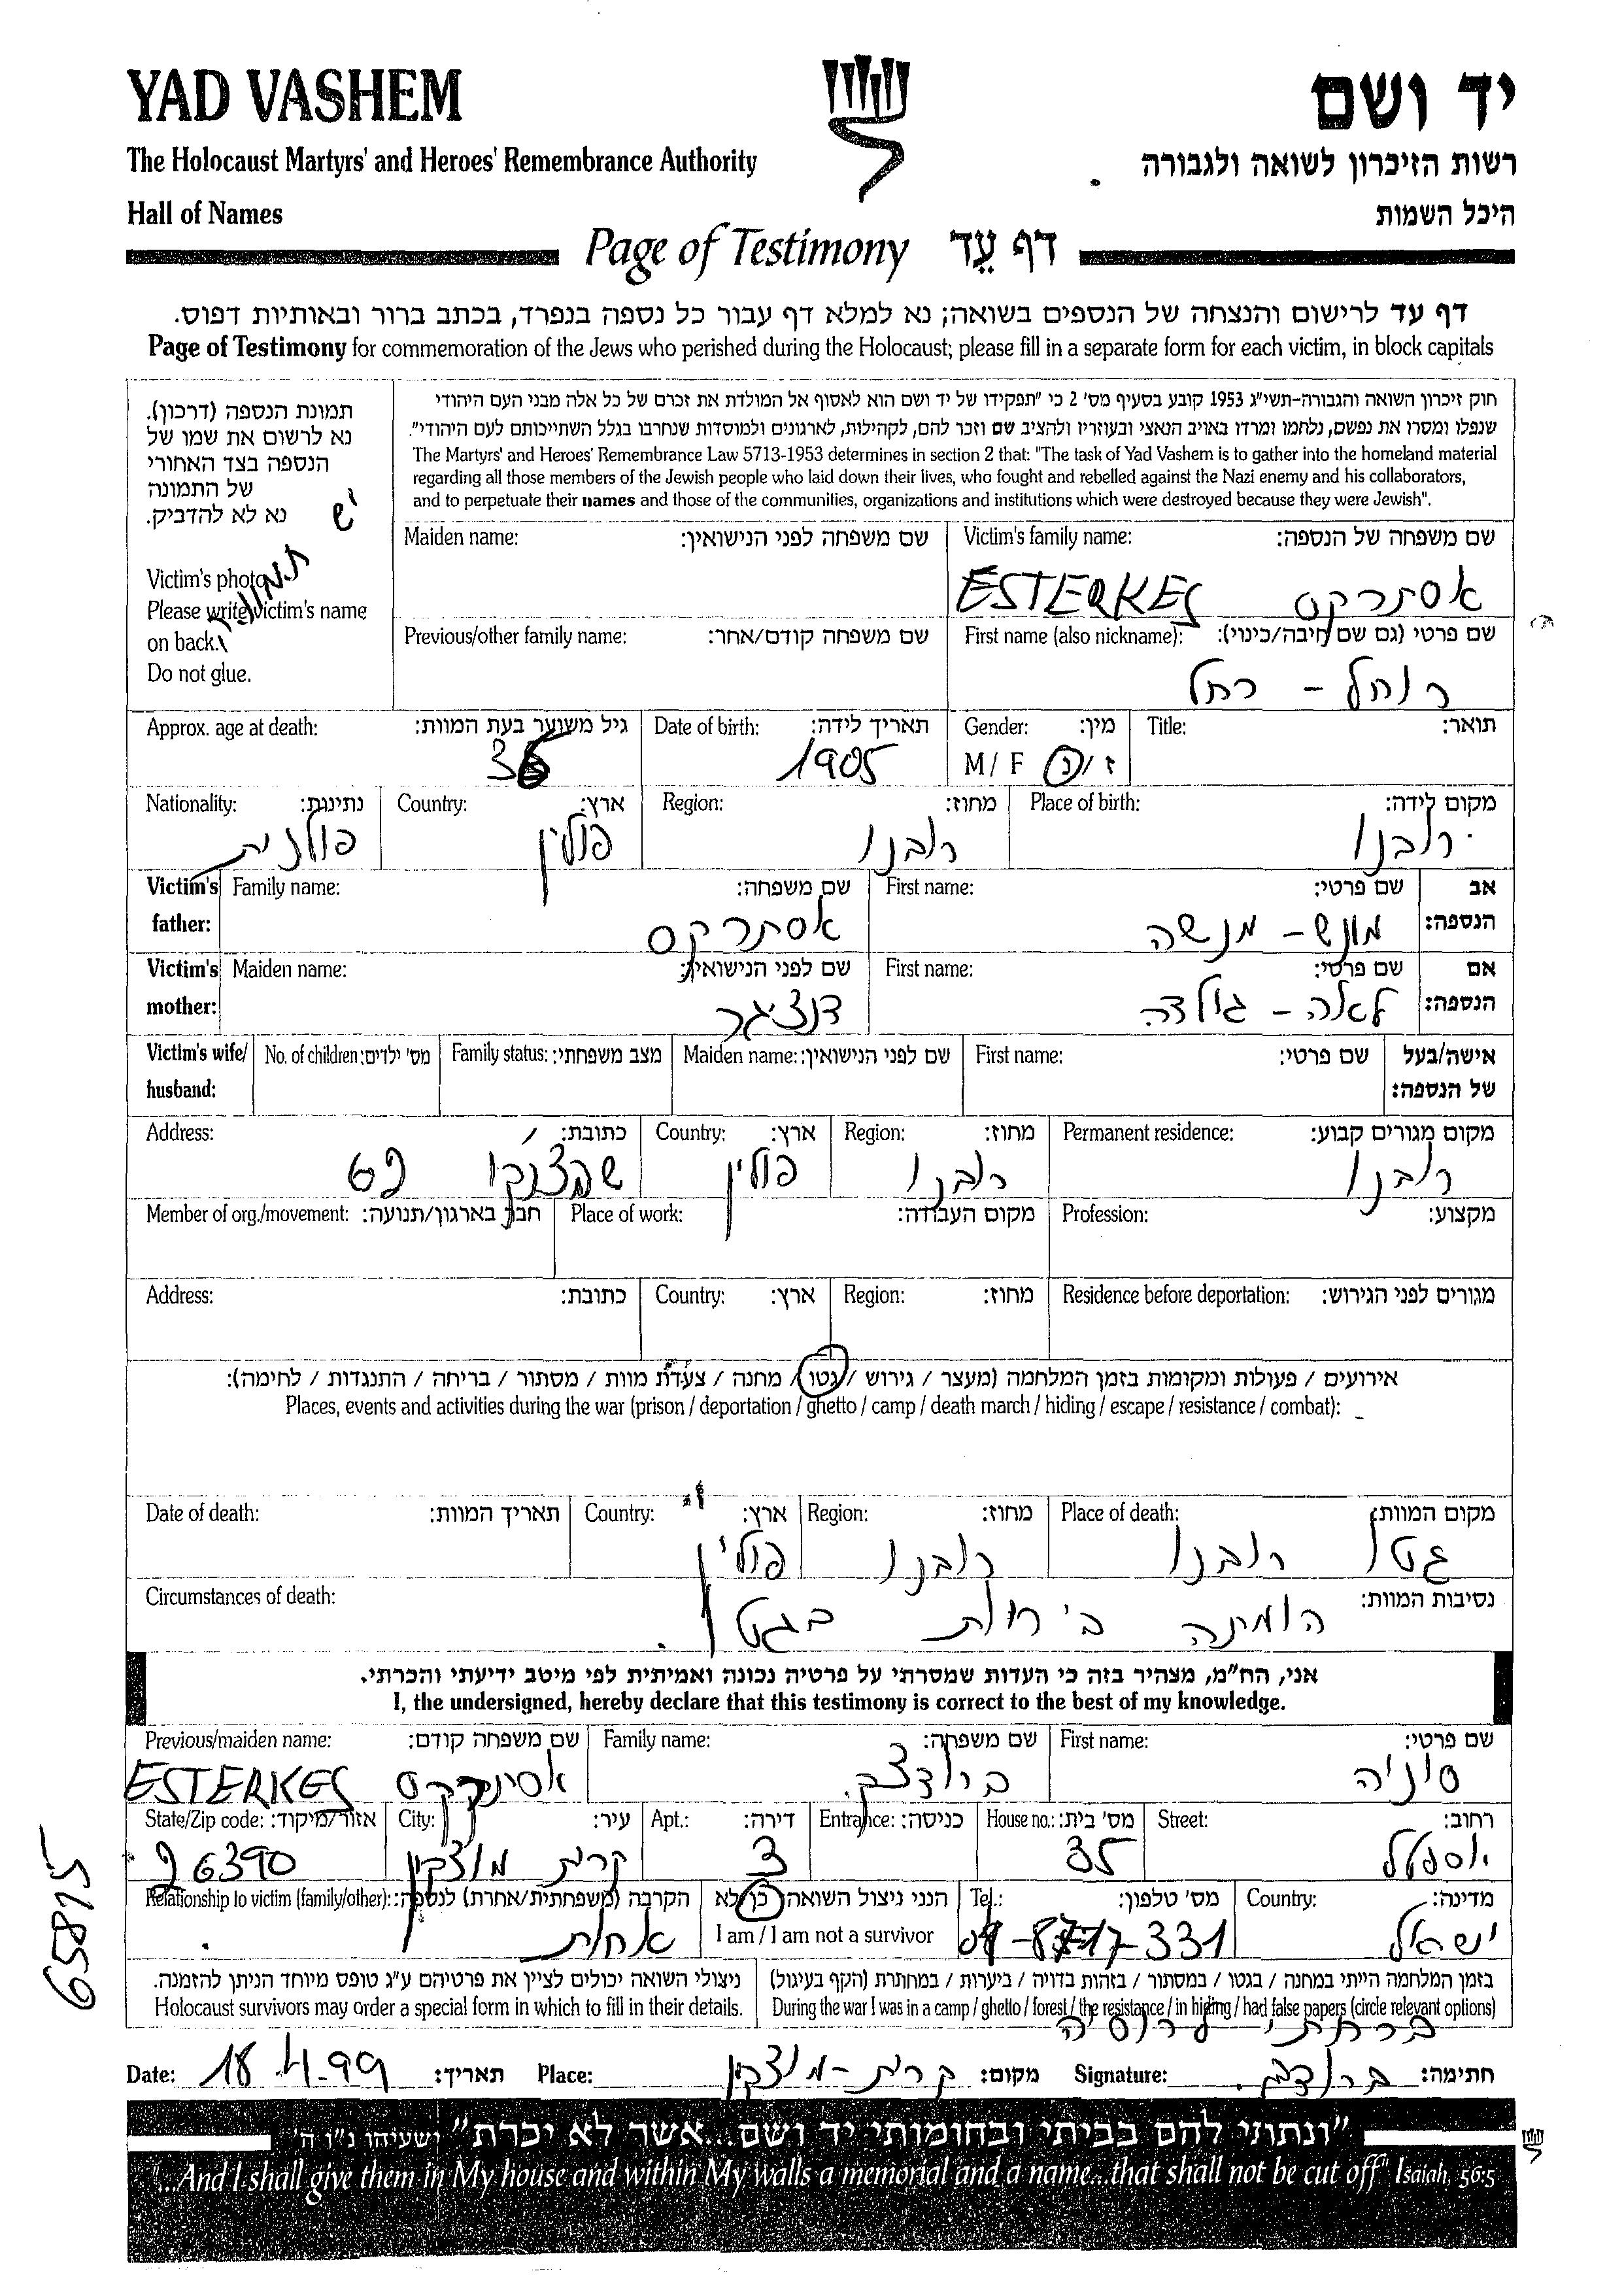 YAD VASHEM
יד ושם
The Holocaust Martyrs' and Heroes' Remembrance Authority
רשות הזיכרון לשואה ולגבורה
Hall of Names
היכל השמות
Page of Testimony דף עֵד
דף עד לרישום והנצחה של הנספים בשואה; נא למלא דף עבור כל נספה בנפרד, בכתב ברור ובאותיות דפוס.
Page of Testimony for commemoration of the Jews who perished during the Holocaust; please fill in a separate form for each victim, in block capitals
תמונת הנספה (דרכון).
נא לרשום את שמו של
הנספה בצד האחורי
של התמונה
נא לא להדביק.
יש
תמונה
Victim's photo
Please write victim's name
on back.
Do not glue.
חוק זיכרון השואה והגבורה-תשי"ג 1953 קובע בסעיף מס' 2 כי "תפקידו של יד ושם הוא לאסוף אל המולדת את זכרם של כל אלה מבני העם היהודי
שנפלו ומסרו את נפשם, נלחמו ומרדו באויב הנאצי ובעוזריו ולהציב שם וזכר להם, לקהילות, לארגונים ולמוסדות שנחרבו בגלל השתייכותם לעם היהודי".
The Martyrs' and Heroes' Remembrance Law 5713-1953 determines in section 2 that: "The task of Yad Vashem is to gather into the homeland material
regarding all those members of the Jewish people who laid down their lives, who fought and rebelled against the Nazi enemy and his collaborators,
and to perpetuate their names and those of the communities, organizations and institutions which were destroyed because they were Jewish".
Victim's family name: שם משפחה של הנספה:
ESTERKES אסתרקס
Maiden name: שם משפחה לפני הנישואין:
First name (also nickname): שם פרטי (גם שם חיבה/כינוי):
רוחל - רחל
Previous/other family name: שם משפחה קודם/אחר:
Title: תואר:
Gender: מין:
M / F ז / נ
Date of birth: תאריך לידה:
1905
Approx. age at death: גיל משוער בעת המוות:
36
Place of birth: מקום לידה:
רובנו
Region: מחוז:
רובנו
Country: ארץ:
פולין
Nationality: נתינות:
פולנית
Victim's father: אב הנספה:
First name: שם פרטי:
מונש - מנשה
Family name: שם משפחה:
אסתרקס
Victim's mother: אם הנספה:
First name: שם פרטי:
לאה - גולדה
Maiden name: שם לפני הנישואין:
דנציגר
Victim's wife/ husband: אישה/בעל של הנספה:
First name: שם פרטי:
Maiden name: שם לפני הנישואין:
Family status: מצב משפחתי:
No. of children: מס' ילדים:
Permanent residence: מקום מגורים קבוע:
רובנו
Region: מחוז:
רובנו
Country: ארץ:
פולין
Address: כתובת:
69
Profession: מקצוע:
Place of work: מקום העבודה:
Member of org./movement: חבר בארגון/תנועה:
Residence before deportation: מגורים לפני הגירוש:
Region: מחוז:
Country: ארץ:
Address: כתובת:
אירועים / פעולות ומקומות בזמן המלחמה (מעצר / גירוש / גטו / מחנה / צעדת מוות / מסתור / בריחה / התנגדות / לחימה):
Places, events and activities during the war (prison / deportation / ghetto / camp / death march / hiding / escape / resistance / combat):
Place of death: מקום המוות:
גטו רובנו
Region: מחוז:
רובנו
Country: ארץ:
פולין
Date of death: תאריך המוות:
Circumstances of death: נסיבות המוות:
הומתה ביחות בגטו.
אני, הח"מ, מצהיר בזה כי העדות שמסרתי על פרטיה נכונה ואמיתית לפי מיטב ידיעתי והכרתי.
I, the undersigned, hereby declare that this testimony is correct to the best of my knowledge.
First name: שם פרטי:
סוניה
Family name: שם משפחה:
Previous/maiden name: שם משפחה קודם:
ESTERKES אסתרקס
Street: רחוב:
House no.: מס' בית:
35
Entrance: כניסה:
Apt.: דירה:
3
City: עיר:
קרית מוצקין
State/Zip code: אזור/מיקוד:
26390
Country: מדינה:
ישראל
Tel.: מס' טלפון:
04-8717-331
הנני ניצול השואה כן לא
I am / I am not a survivor
Relationship to victim (family/other): הקרבה (משפחתית/אחרת) לנספה:
אחות
בזמן המלחמה הייתי במחנה / בגטו / במסתור / בזהות בדויה / ביערות / במחתרת (הקף בעיגול)
During the war I was in a camp / ghetto / forest / the resistance / in hiding / had false papers (circle relevant options)
ברחתי לרוסיה
ניצולי השואה יכולים לציין את פרטיהם ע"ג טופס מיוחד הניתן להזמנה.
Holocaust survivors may order a special form in which to fill in their details.
Date: 18.4.99 תאריך:
Place: קרית-מוצקין מקום:
Signature: חתימה:
65875
"ונתתי להם בביתי ובחומותי יד ושם...אשר לא יכרת" ישעיהו נ"ו ה'
"...And I shall give them in My house and within My walls a memorial and a name...that shall not be cut off" Isaiah, 56:5